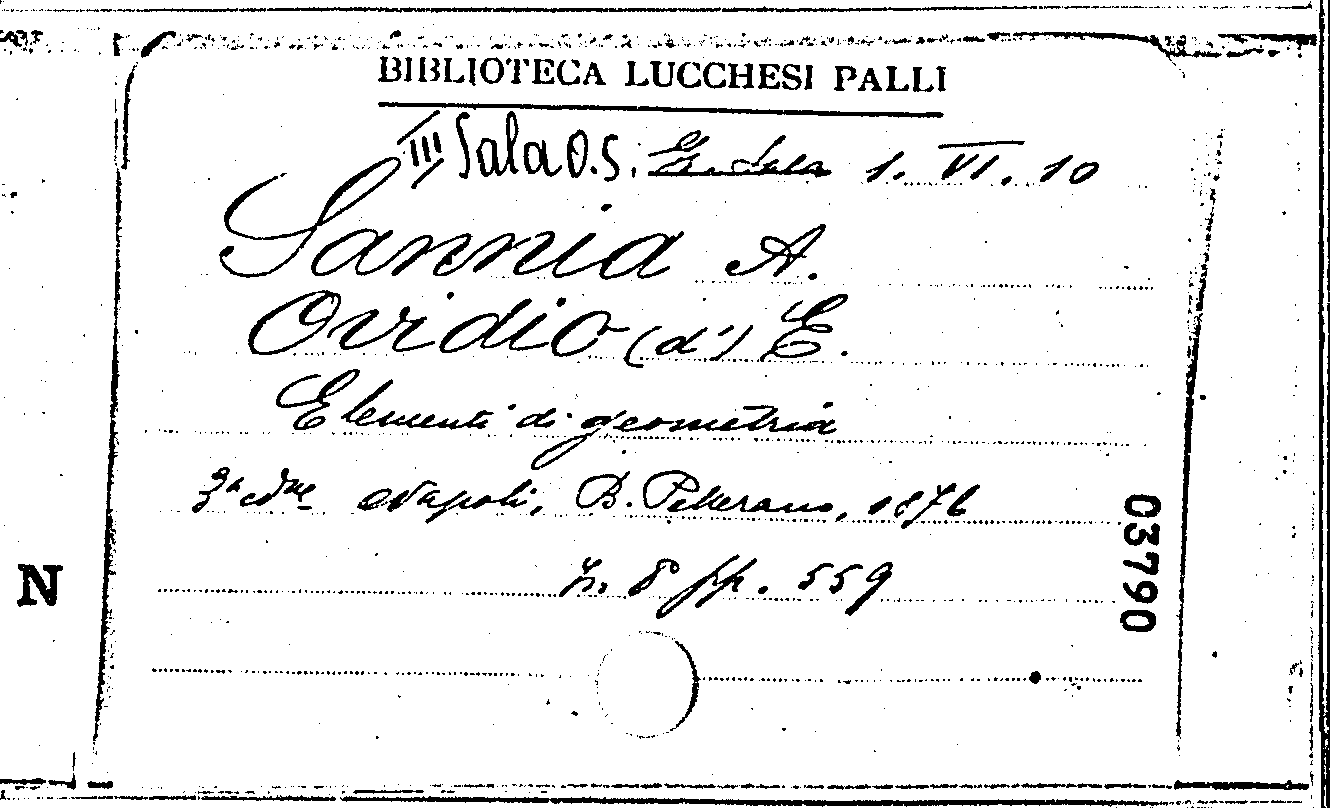 BIBLIOTECA LUCCHESI PALLI
III Sala O.S. Gr. Sala 1. VI. 10
Sannia A.
Ovidio (d') E.
Elementi di geometria
3ª ed.ne Napoli, B. Pellerano, 1876
In 8º pp. 559
03790
N